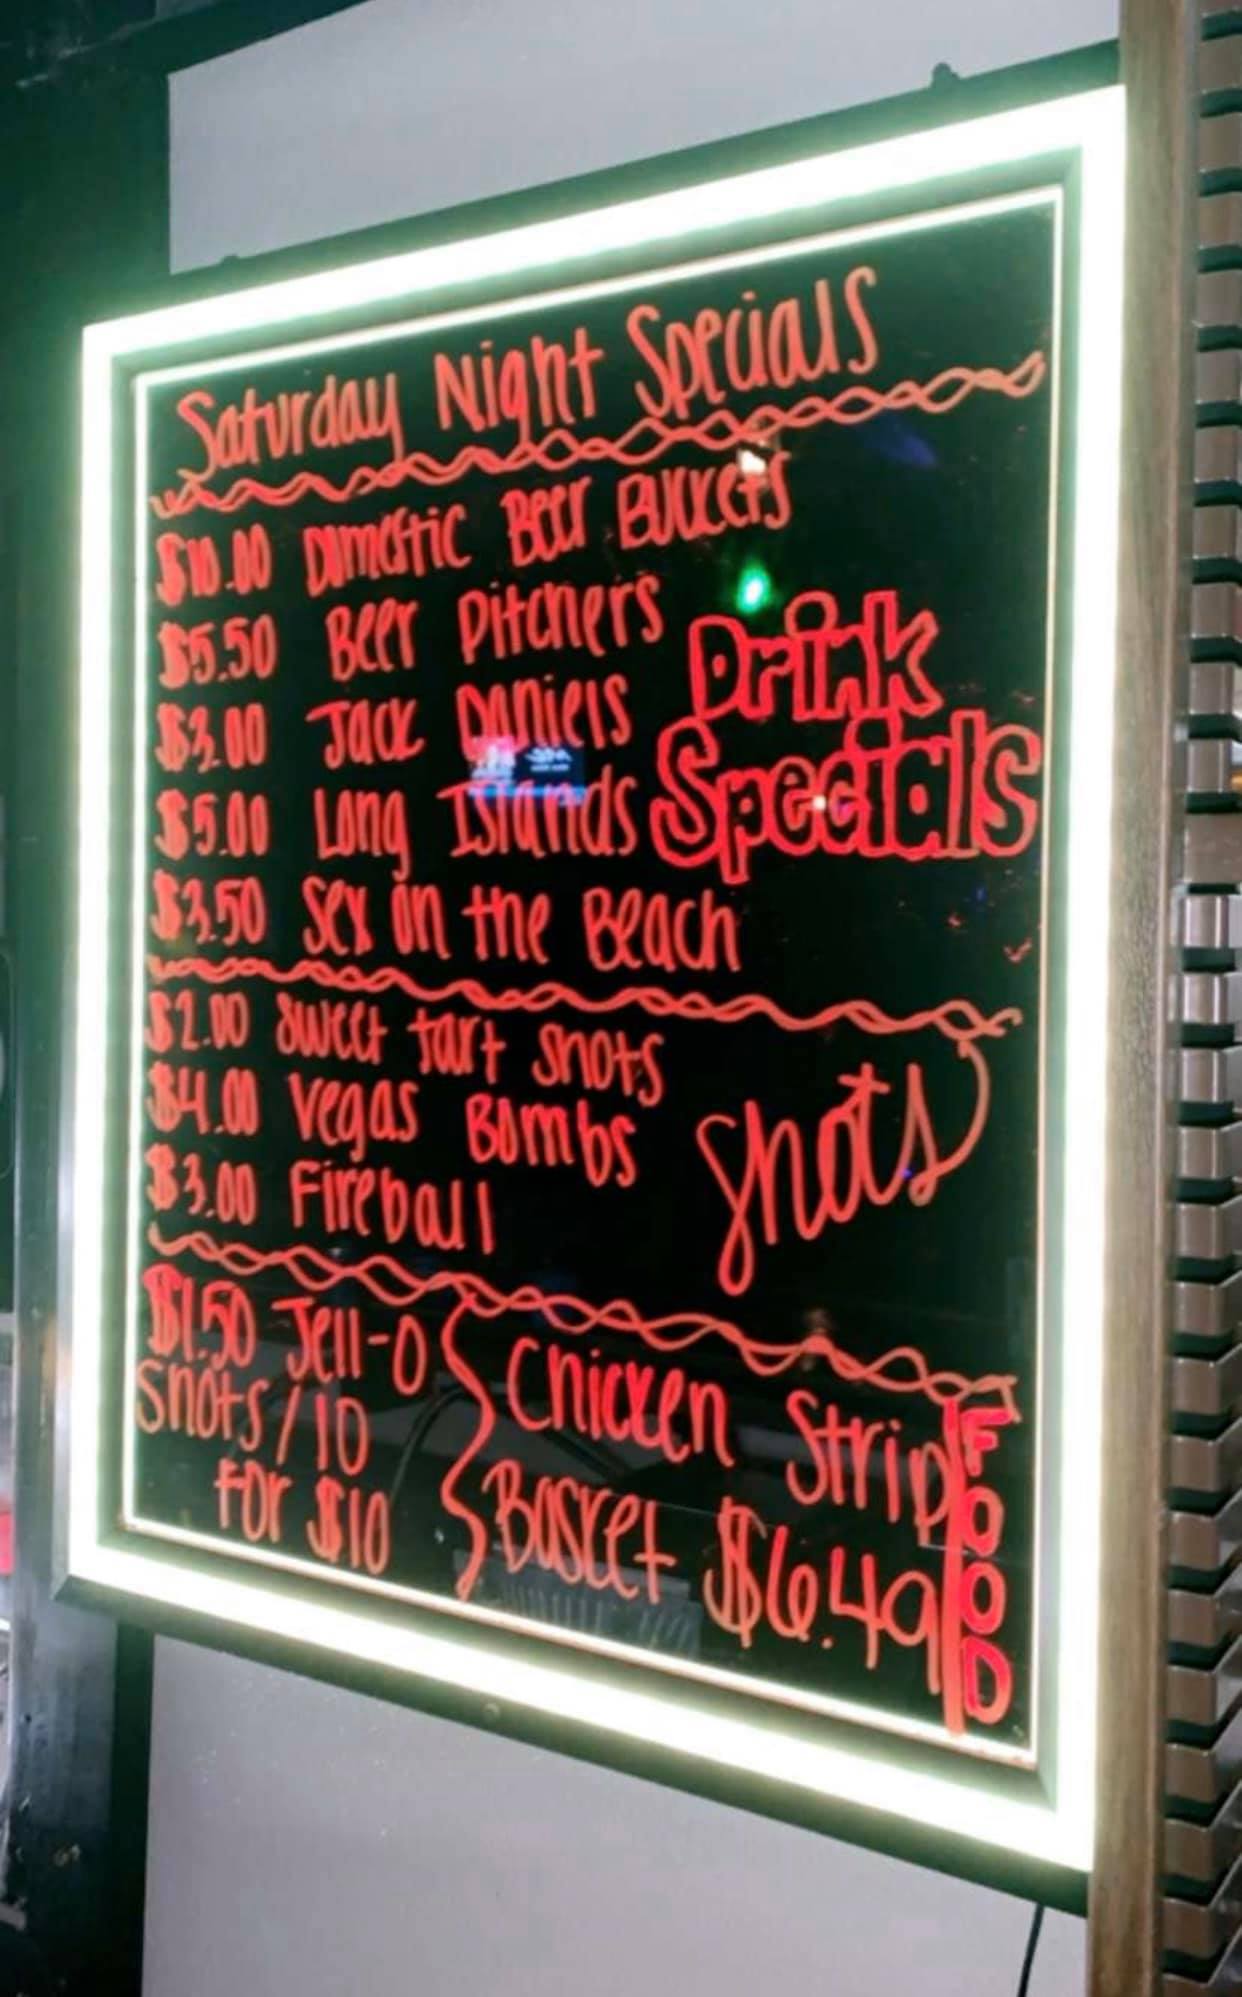 Saturday Night Specials
$10.00 Domestic Beer Buckets
$5.50 Beer Pitchers
$3.00 Jack Daniels
$5.00 Long Islands
$3.50 Sex on the Beach
Drink
Specials
$2.00 Sweet tart shots
$4.00 Vegas Bombs
$3.00 Fireball
Shots
$1.50 Jell-O
Shots/10
For $10
Chicken Strip
Basket $6.49
FOOD